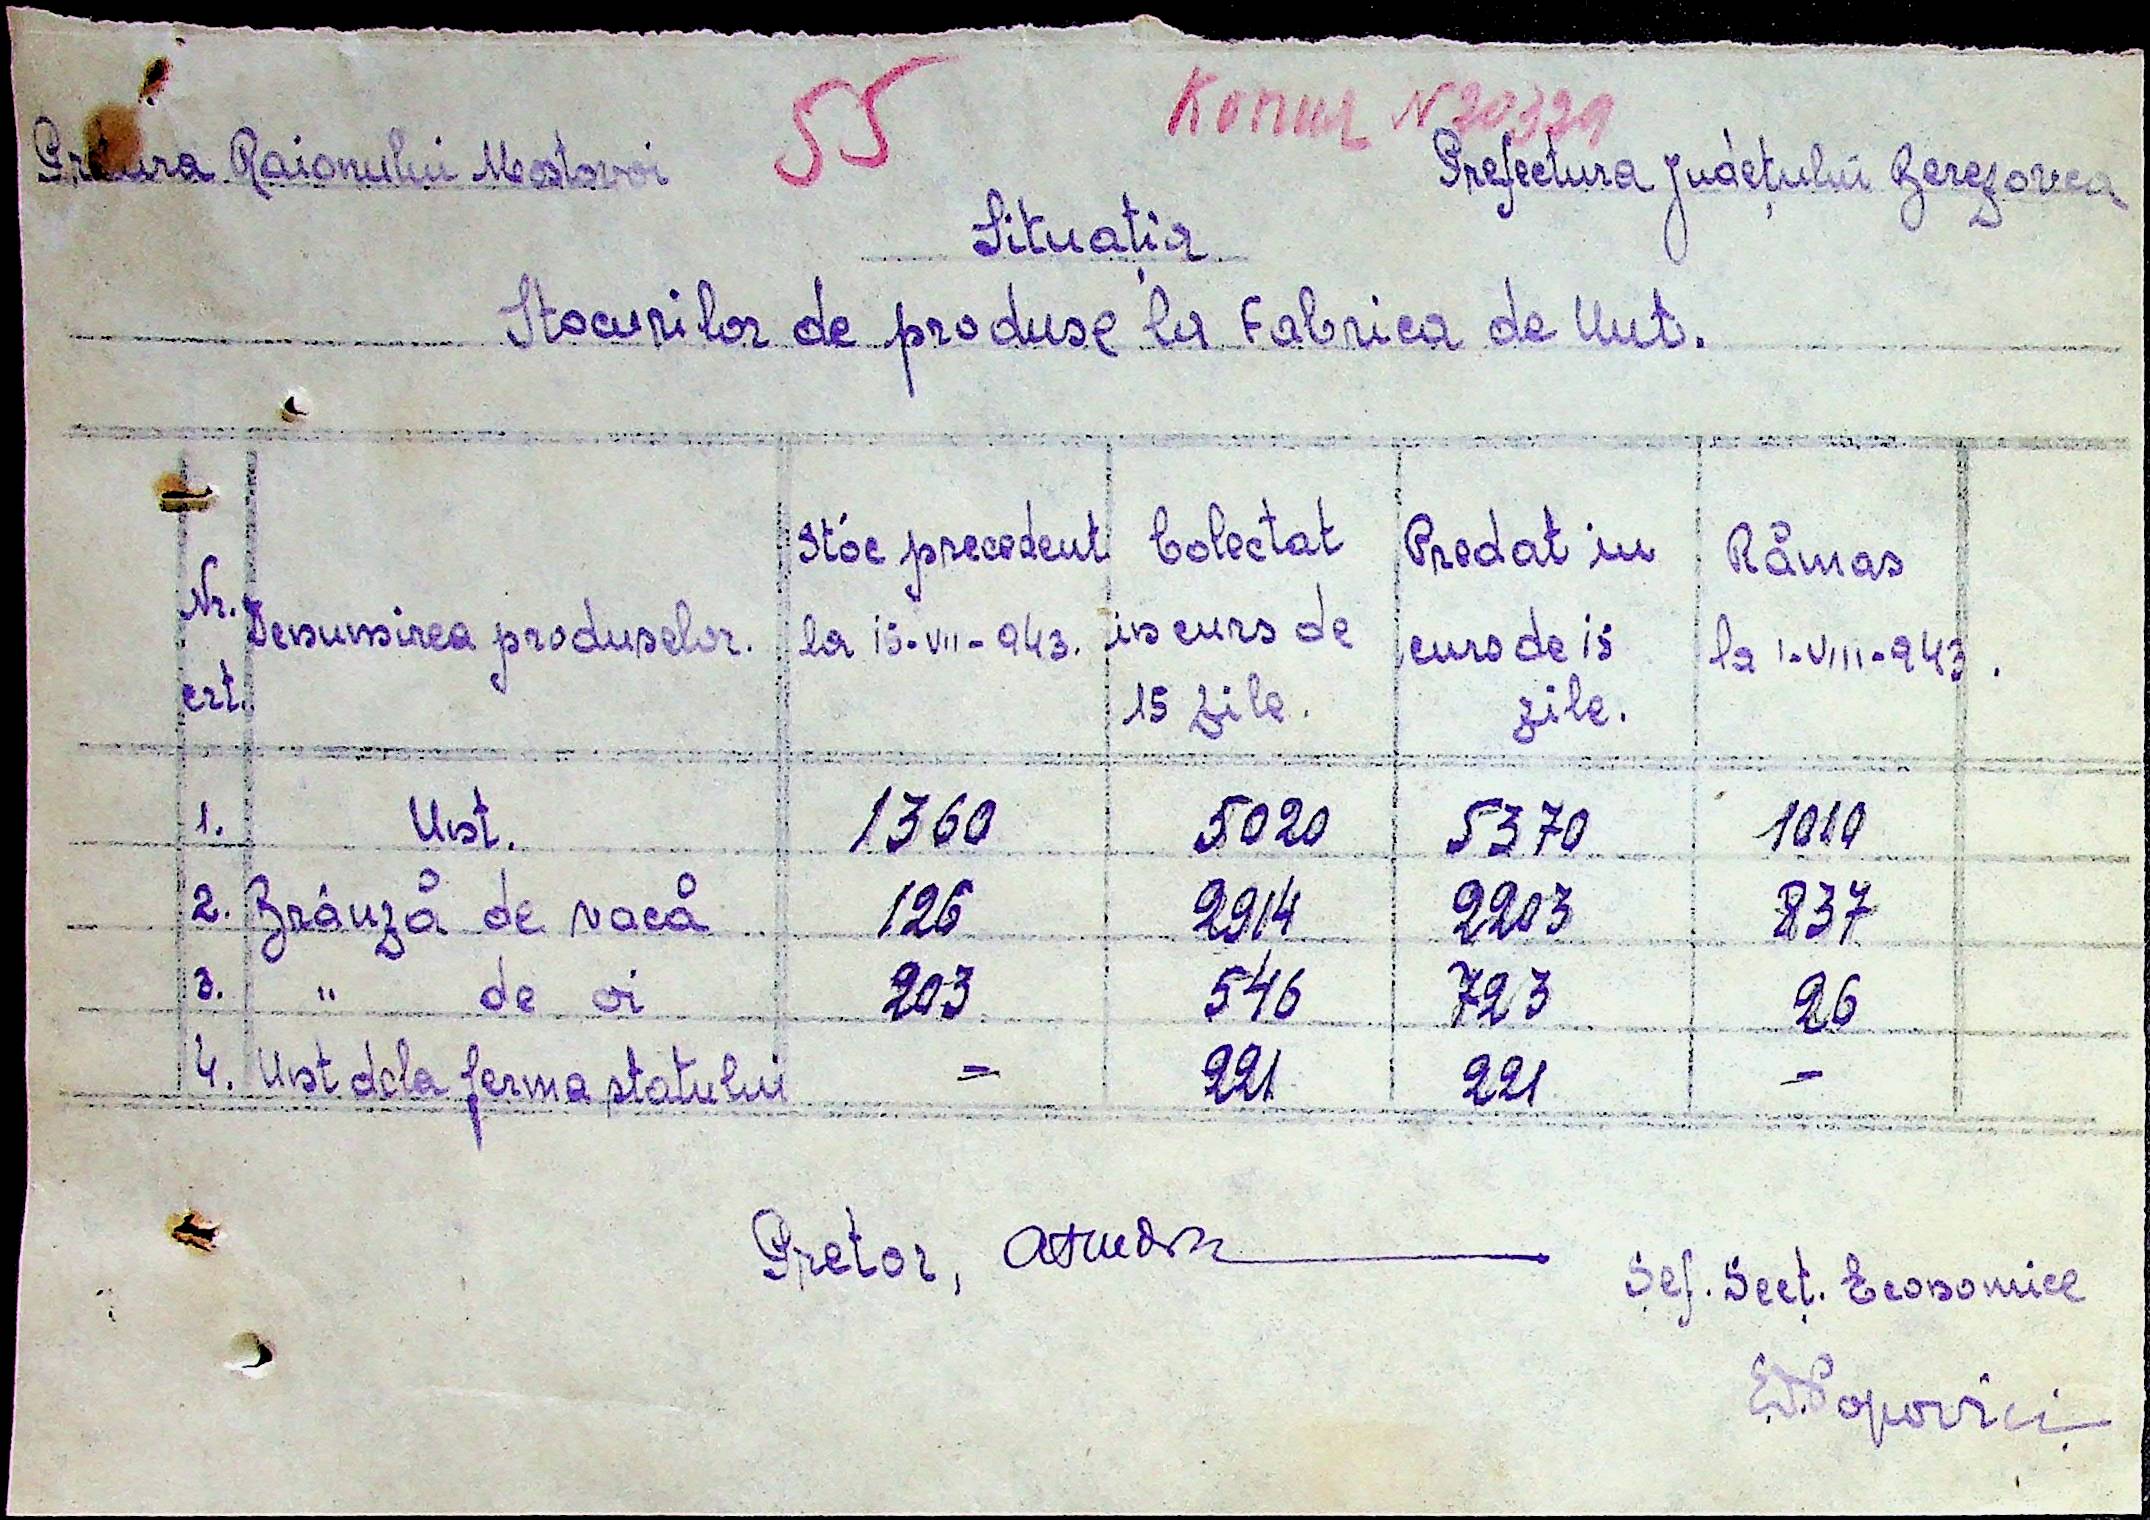 55
Pretura Raionului Mostovoi
Prefectura Județului Berezovca
Situația
Stocurilor de produse la Fabrica de Unt.
Nr. crt. Denumirea produselor. Stóc precedent la 15-VII-943. Colectat in curs de 15 zile. Predat in curs de 15 zile. Råmas la 1-VIII-943.
1. Unt. 1360 5020 5370 1010
2. Brânzå de vacå 126 2914 2203 837
3. " de oi 203 546 723 26
4. Unt dela ferma statului = 221 221 =
Pretor,
Șef. Secț. Economice
Popovici